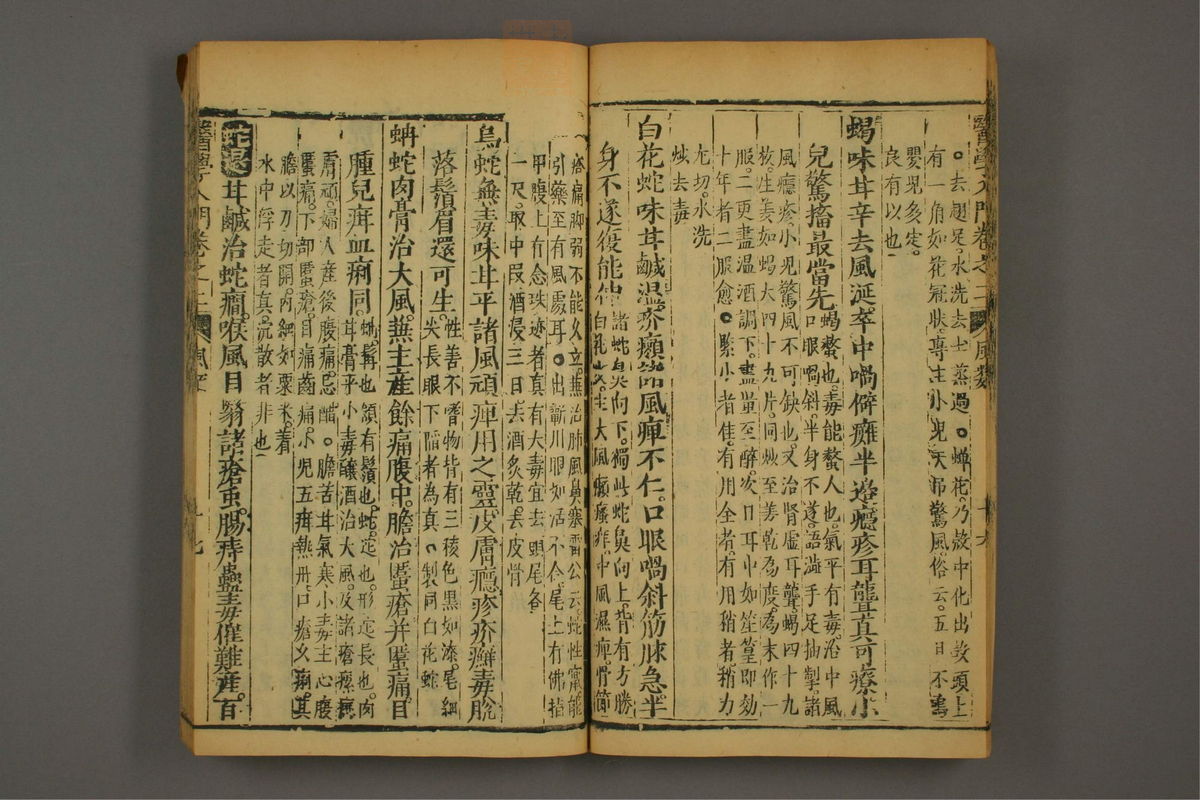 醫學入門卷之二 風類 十六
○去翅足水洗去土蒸過○蟬花乃殼中化出散頭上
有一角如花冠狀專主小兒天吊驚風俗云五日不鳴
嬰兒多定
良有以也
蝎味甘辛去風涎卒中喎僻癱半邊癮疹耳聾真可療小
兒驚搐最當先
蝎螫也毒能螫人也氣平有毒治中風
口眼喎斜半身不遂語澁手足抽掣諸
風癮疹小兒驚風不可缺也又治腎虛耳聾蝎四十九
枚生姜如蝎大四十九片同炒至姜乾為度為末作一
服二更盡溫酒調下盡量至醉次日耳中如笙簧即効
十年者二服愈○緊小者佳有用全者有用稍者稍力
尤切水洗
炒去毒
白花蛇味甘鹹溫疥癩諸風痺不仁口眼喎斜筋脉急半
身不遂復能伸
諸蛇鼻向下獨此蛇鼻向上背有方勝
白花主大風癩瘙痒中風濕痺骨節
疼痛脚弱不能久立兼治肺風鼻塞雷公云蛇性竄能
引藥至有風處耳○出蘄川眼如活不合尾上有佛指
甲腹上有念珠跡者真有大毒宜去頭尾各
一尺取中段酒浸三日去酒炙乾去皮骨
烏蛇無毒味甘平諸風頑痺用之靈皮膚癮疹疥癬毒脫
落鬚眉還可生
性善不嗜物背有三稜色黑如漆尾細
尖長眼下陷者為真○製同白花蛇
蚺蛇肉膏治大風兼主産餘痛腹中膽治䘌瘡并䘌痛目
腫兒疳血痢同
蚺髯也頷有鬚也蛇迤也形迤長也肉
甘膏平小毒釀酒治大風及諸瘡瘰癧
膚頑婦人産後腹痛忌醋○膽苦甘氣寒小毒主心腹
䘌痛下部䘌瘡目痛齒痛小兒五疳熱丹口瘡久痢其
膽以刀切開內細如粟米着
水中浮走者真沉散者非也
蛇蛻甘鹹治蛇癇喉風目翳諸瘡䖝腸痔蠱毒催難産百
醫學入門卷之二 風類 十七